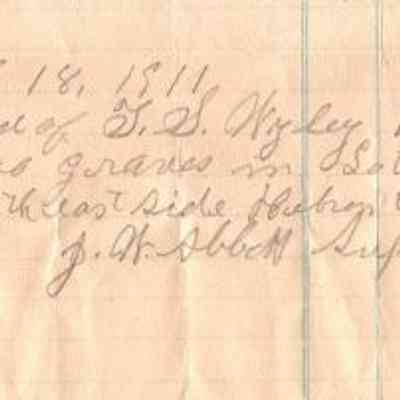 18, 1911
of T. S. Wyley
graves in Lot
east side Hebron
J. W. Abbott Sup